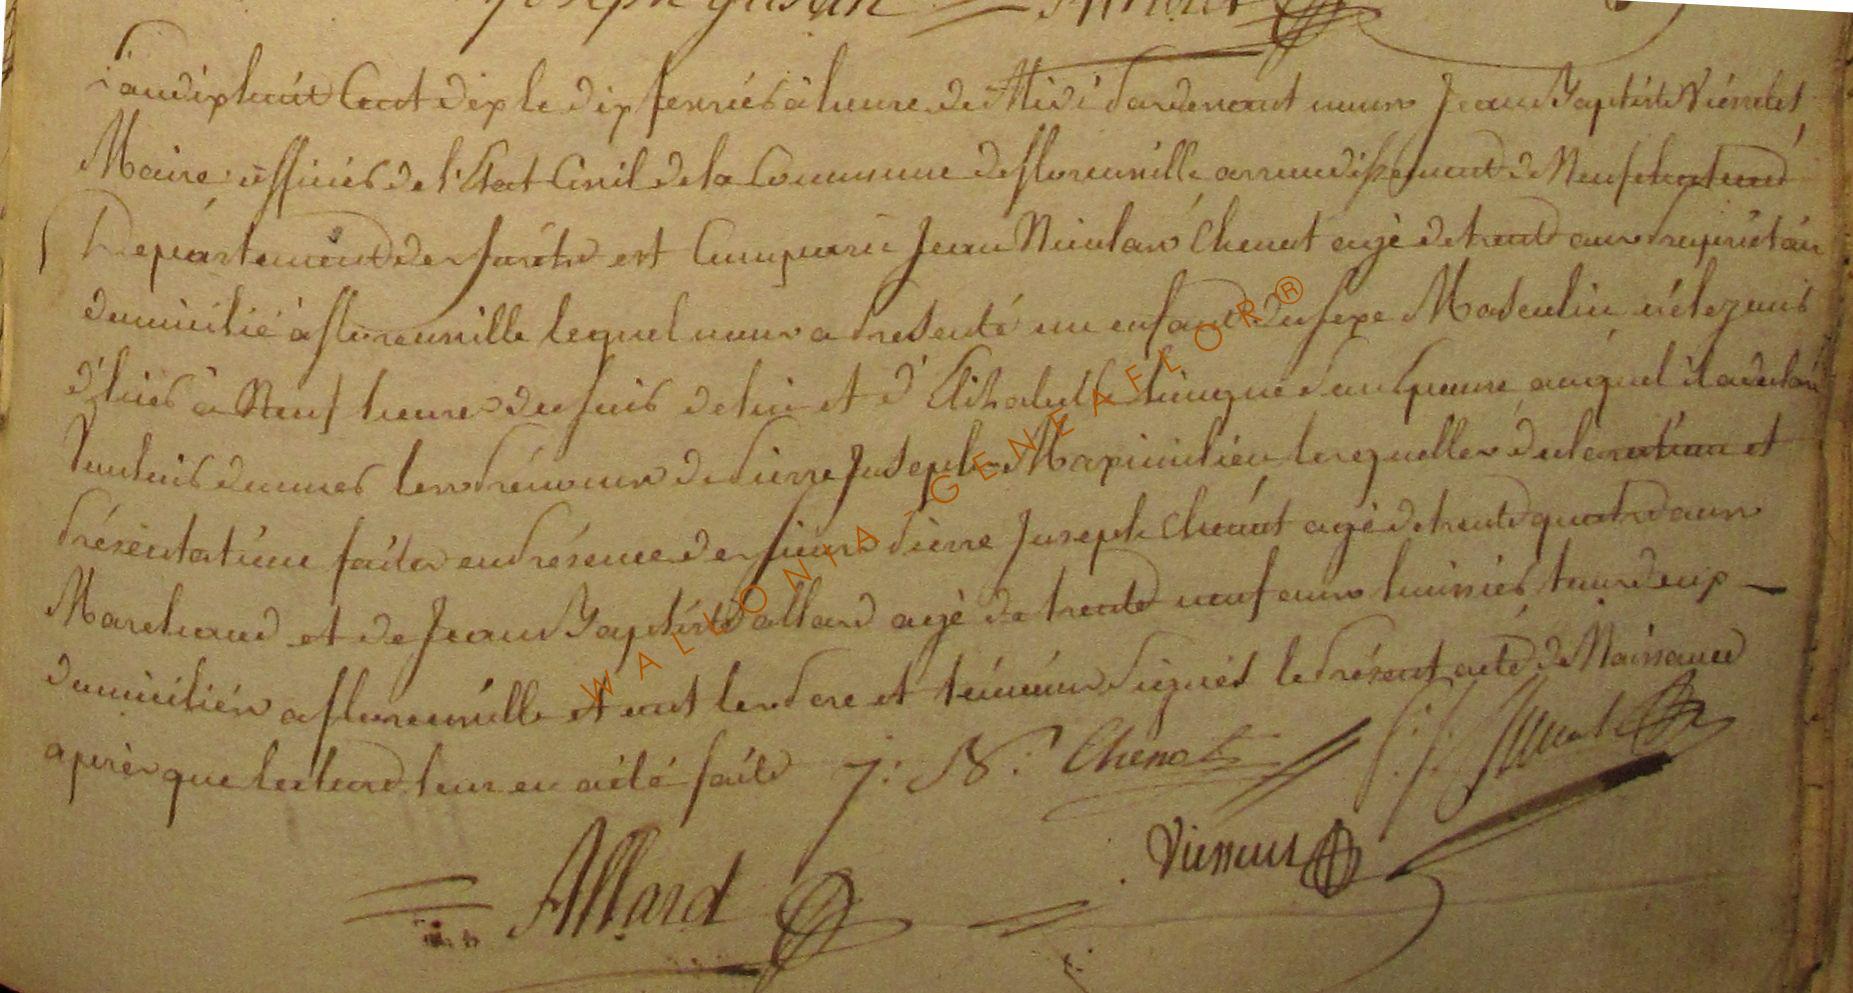 Joseph
L'an dix huit Cent dix le dix fevrier à heure de Midi Pardevant nous Jean Baptiste
Maire officier de l'Etat Civil de la Commune de florenville arrondissement de Neufchateau
Departement des forêts est Comparu Jean Nicolas Chenot agé de trente ans propriétair
domicilié à florenville lequel nous a presenté un enfant du sexe Masculin né le jour
d'hier à Neuf heures du soir de lui et d'Elisabeth son Epouse auquel il a declaré
vouloir donner les prenoms de pierre Joseph Maximilien lesquelles declaration et
présentation faites en présence des sieurs pierre Joseph Chenot agé de trente quatre ans
Marchand et de Jean Baptiste allard agé de trente neuf ans huissier tous deux
domiciliés a florenville et ont les pere et témoins signés le présent acte de Naissance
après que lecture leur en a été faite J: N: Chenot
Allard
WALLONIA-GENEAFLOR®